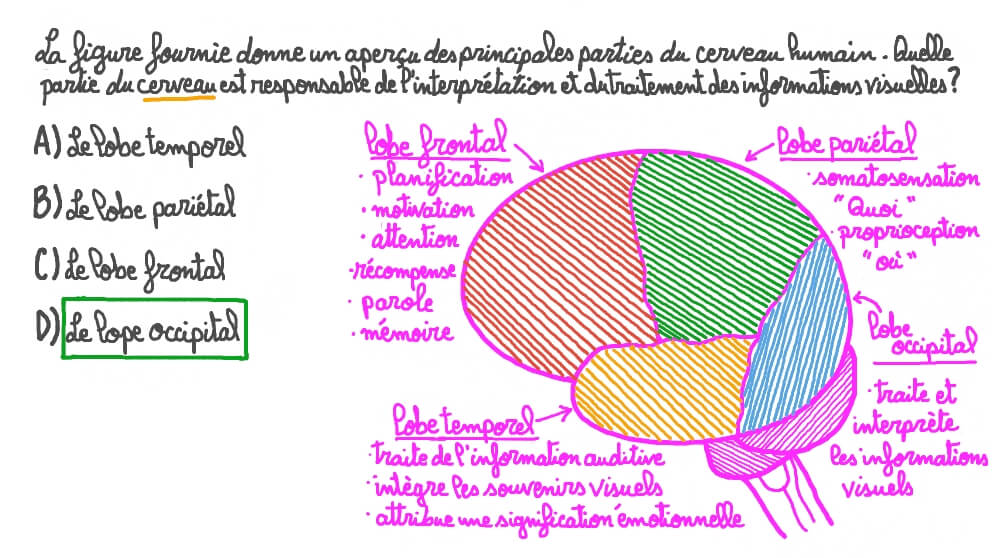 La figure fournie donne un aperçu des principales parties du cerveau humain. Quelle
partie du cerveau est responsable de l'interprétation et du traitement des informations visuelles?
A) Le lobe temporel
B) Le lobe pariétal
C) Le lobe frontal
D) Le lope occipital
lobe frontal
· planification
· motivation
· attention
· récompense
· parole
· mémoire
lobe pariétal
· somatosensation
"Quoi"
· proprioception
"où"
lobe
occipital
· traite et
interprète
les informations
visuels
lobe temporel
· traite de l'information auditive
· intègre les souvenirs visuels
· attribue une signification émotionnelle